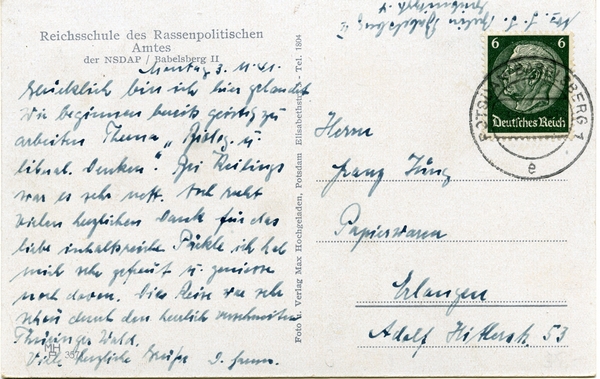 Reichsschule des Rassenpolitischen
Amtes
der NSDAP / Babelsberg II
Montag 3. 11. 41.
Glücklich bin ich hier gelandet
Wir beginnen bereits geistig zu
arbeiten Thema „Biolog. u.
liberal. Denken." Bei Reilings
war es sehr nett. Auch recht
vielen herzlichen Dank für das
liebe inhaltsreiche Päckle ich hab
mich sehr gefreut u. geniesse
noch davon. Die Reise war sehr
schön durch den herrlich verschneiten
Thüringer Wald.
Viele herzliche Grüße D.
MH
P 3571
Foto u. Verlag Max Hochgeladen, Potsdam Elisabethstr. - Tel. 1804
6 6
Deutsches Reich
POTSDAM-BABELSBERG 1
e
Herrn
Franz Jüng
Papierwaren
Erlangen
Adolf Hitlerstr. 53